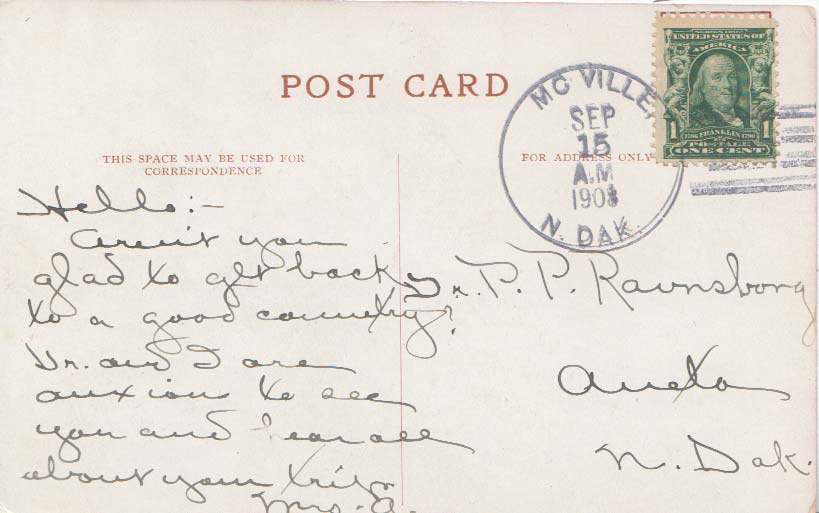 SERIES 1902
UNITED STATES OF
AMERICA
1 1706 FRANKLIN 1790 1
POSTAGE
ONE CENT
POST CARD
MC VILLE,
SEP
15
A.M
190
N. DAK.
THIS SPACE MAY BE USED FOR
CORRESPONDENCE
FOR ADDRESS ONLY
Hello:-
Aren't you
glad to get back
to a good country?
Dr. and I are
anxious to see
you and hear all
about your trip.
Mrs. A.
Dr. P. P. Ravnsborg
Aneta
N. Dak.